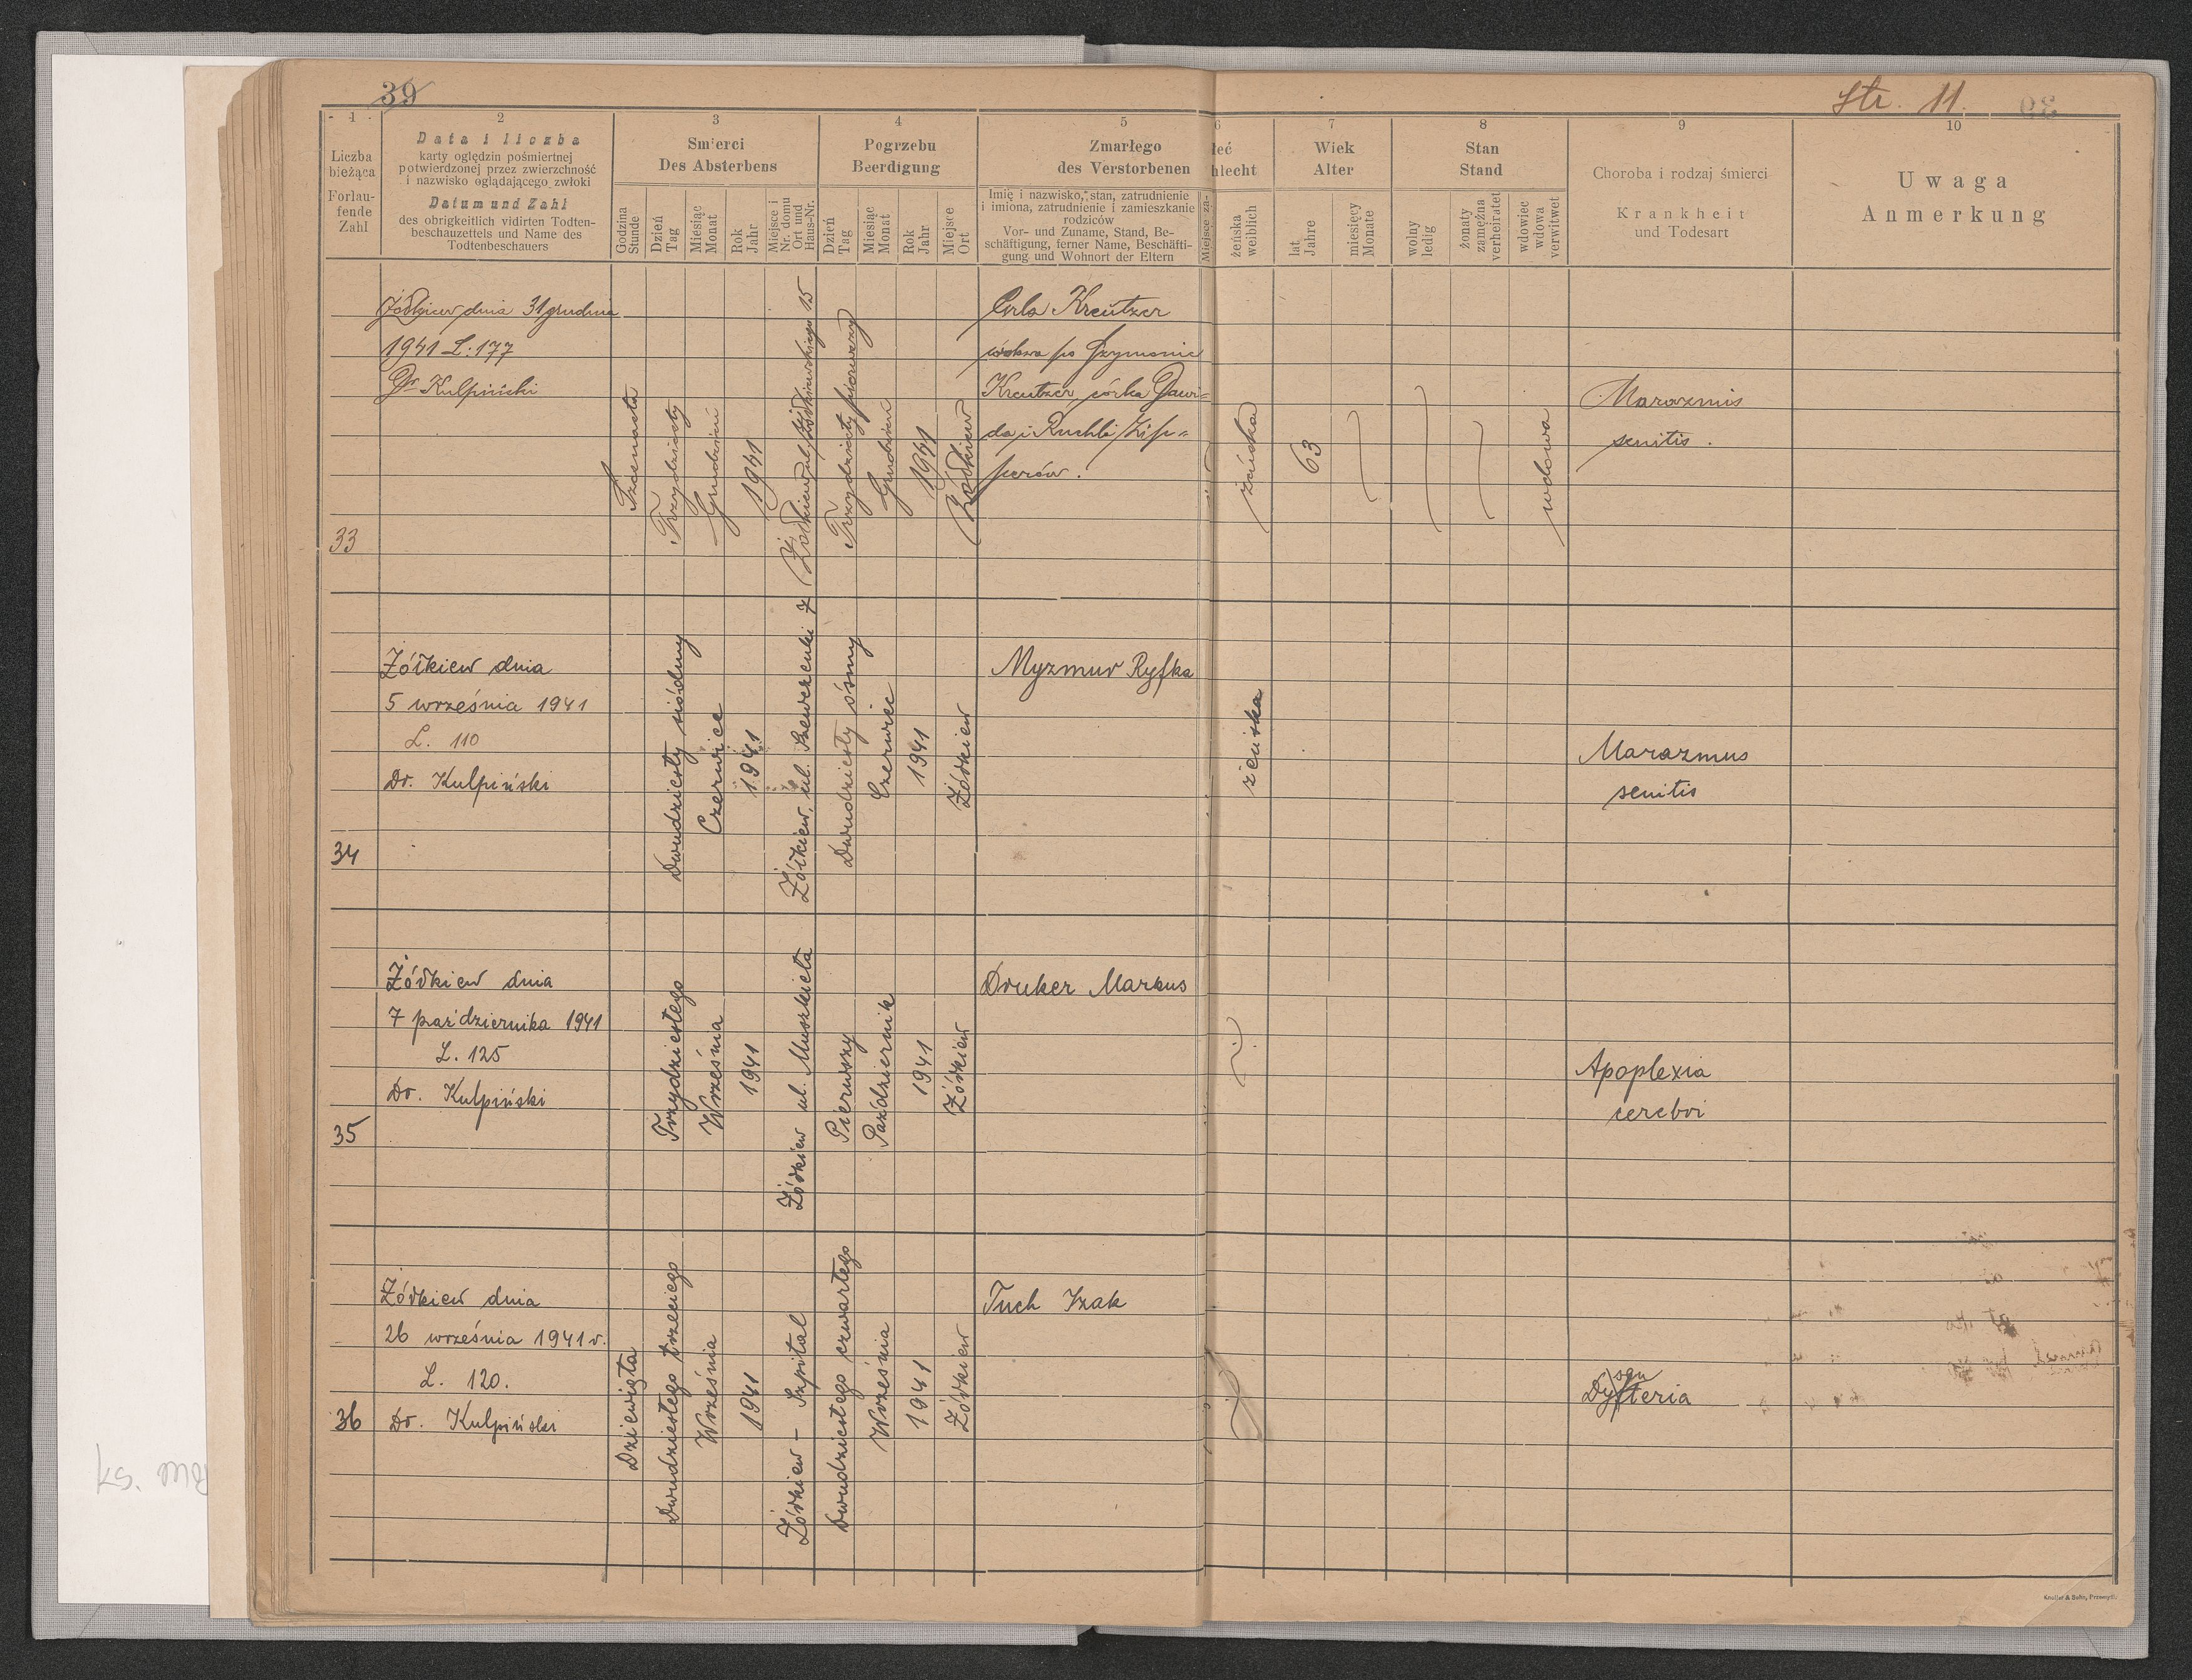 39
Str. 11.
1
2
3
4
5
6
7
8
9
10
Liczba
bieżąca
Forlau-
fende
Zahl
Data i liczba
karty oględzin pośmiertnej
potwierdzonej przez zwierzchność
i nazwisko oglądającego zwłoki
Datum und Zahl
des obrigkeitlich vidirten Todten-
beschauzettels und Name des
Todtenbeschauers
Smierci
Des Absterbens
Godzina
Stunde
Dzień
Tag
Miesiąc
Monat
Rok
Jahr
Miejsce i
Nr. domu
Ort und
Haus-Nr.
Pogrzebu
Beerdigung
Dzień
Tag
Miesiąc
Monat
Rok
Jahr
Miejsce
Ort
Zmarłego
des Verstorbenen
Imię i nazwisko, stan, zatrudnienie
i imiona, zatrudnienie i zamieszkanie
rodziców
Vor- und Zuname, Stand, Be-
schäftigung, ferner Name, Beschäfti-
gung und Wohnort der Eltern
Miejsce za-
łeć
hlecht
żeńska
weiblich
Wiek
Alter
lat
Jahre
miesięcy
Monate
Stan
Stand
wolny
ledig
żonaty
zamężna
verheiratet
wdowiec
wdowa
verwitwet
Choroba i rodzaj śmierci
Krankheit
und Todesart
Uwaga
Anmerkung
33
Żółkiew dnia 31 grudnia
1941 L: 177
Dr Kulpiński
Trzydziesty
Grudzień
1941
Żółkiew ul. Żółkiewskiego 15
Trzydziesty pierwszy
Grudzień
1941
Żółkiew
Kreutzer
wdowa po Szymonie
Kreutzer, córka Dawi=
da i Ruchli Zip=
perów.
żeńska
63
wdowa
Marazmus
senitis.
34
Żółkiew dnia
5 września 1941
L. 110
Dr. Kulpiński
Dwudziesty siódmy
Czerwiec
1941
Żółkiew, ul. Szewczenki 7
Dwudziesty ósmy
Czerwiec
1941
Żółkiew
Myzmur Ryfka
żeńska
Marazmus
senitis
35
Żółkiew dnia
7 października 1941
L. 125
Dr. Kulpiński
Trzydziestego
Września
1941
Żółkiew ul. Muszkieta
Pierwszy
Październik
1941
Żółkiew
Druker Markus
Apoplexia
cerebri
36
Żółkiew dnia
26 września 1941 r.
L. 120.
Dr. Kulpiński
Dziewięta
Dwudziestego trzeciego
Września
1941
Żółkiew - Szpital
Dwudziestego czwartego
Września
1941
Żółkiew
Tuch Izak
sen
Dyfteria
Knoller & Sohn, Przemyśl